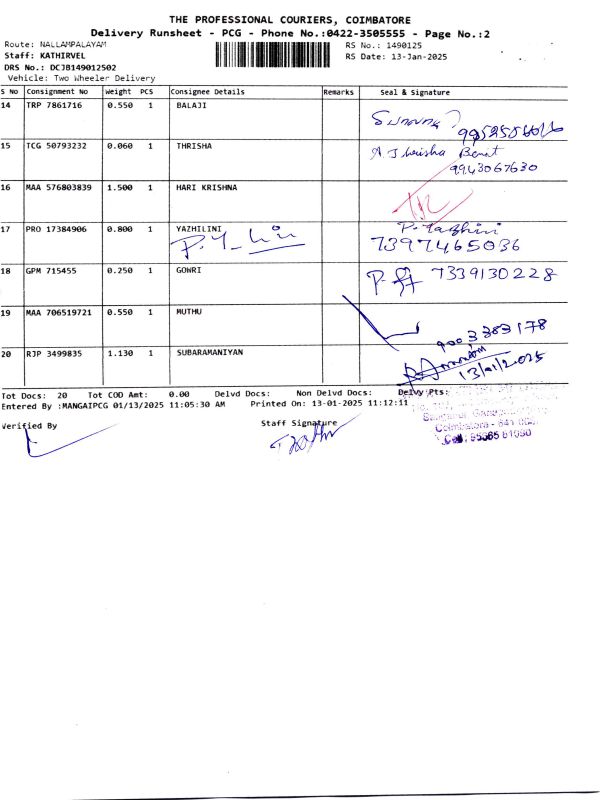 THE PROFESSIONAL COURIERS, COIMBATORE
Delivery Runsheet - PCG - Phone No.:0422-3505555 - Page No.:2
Route: NALLAMPALAYAM RS No.: 1490125
Staff: KATHIRVEL RS Date: 13-Jan-2025
DRS No.: DCJ8149012502
Vehicle: Two Wheeler Delivery
S No Consignment No Weight PCS Consignee Details Remarks Seal & Signature
14 TRP 7861716 0.550 1 BALAJI
15 TCG 50793232 0.060 1 THRISHA
9943067630
16 MAA 576803839 1.500 1 HARI KRISHNA
17 PRO 17384906 0.800 1 YAZHILINI
7397465036
18 GPM 715455 0.250 1 GOWRI 7339130228
19 MAA 706519721 0.550 1 MUTHU
9003383178
20 RJP 3499835 1.130 1 SUBARAMANIYAN
13/01/2025
Tot Docs: 20 Tot COD Amt: 0.00 Delvd Docs: Non Delvd Docs: Delvy Pts:
Entered By :MANGAIPCG 01/13/2025 11:05:30 AM Printed On: 13-01-2025 11:12:11
Verified By Staff Signature